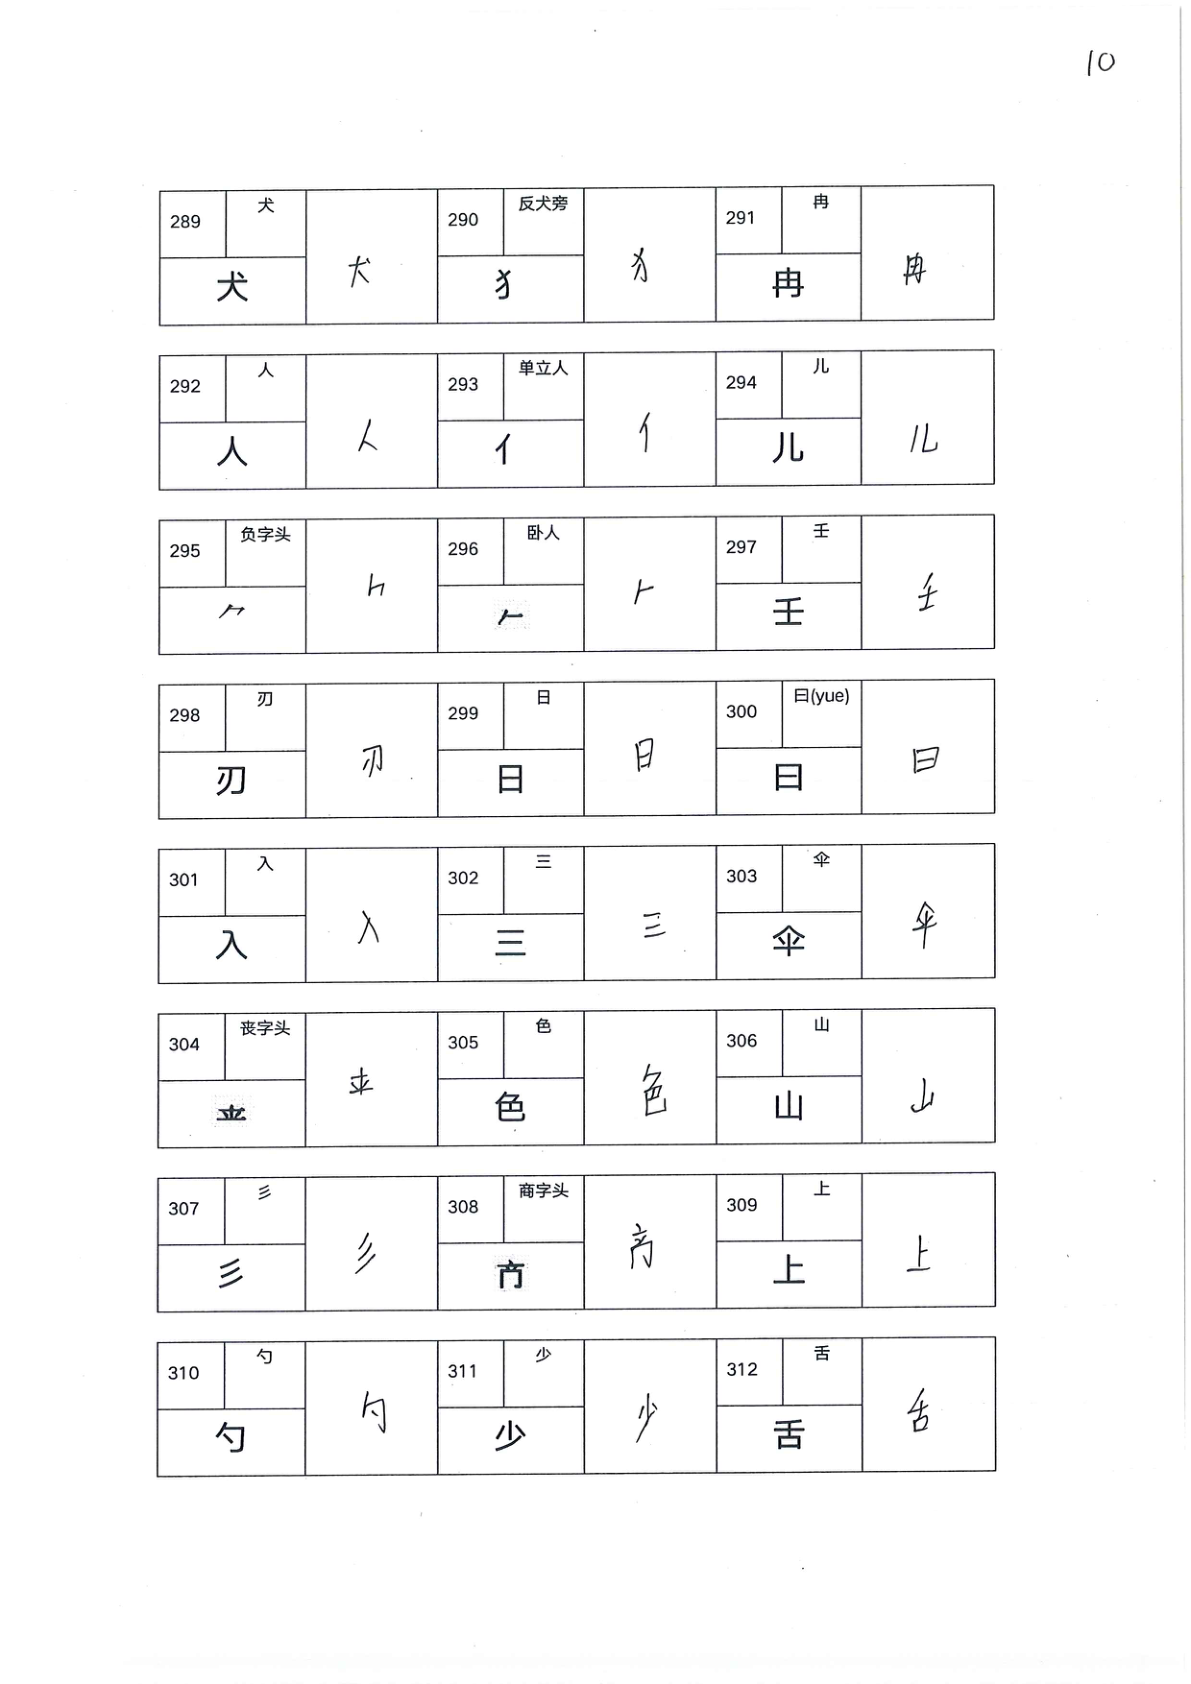 10
289 犬 犬 犬
290 反犬旁 犭 犭
291 冉 冉 冉
292 人 人 人
293 单立人 亻 亻
294 儿 儿 儿
295 负字头 ⺈ ⺈
296 卧人 𠂉 𠂉
297 壬 壬 壬
298 刃 刃 刃
299 日 日 日
300 曰(yue) 曰 曰
301 入 入 入
302 三 三 三
303 伞 伞 伞
304 丧字头
305 色 色 色
306 山 山 山
307 彡 彡 彡
308 商字头
309 上 上 上
310 勺 勺 勺
311 少 少 少
312 舌 舌 舌